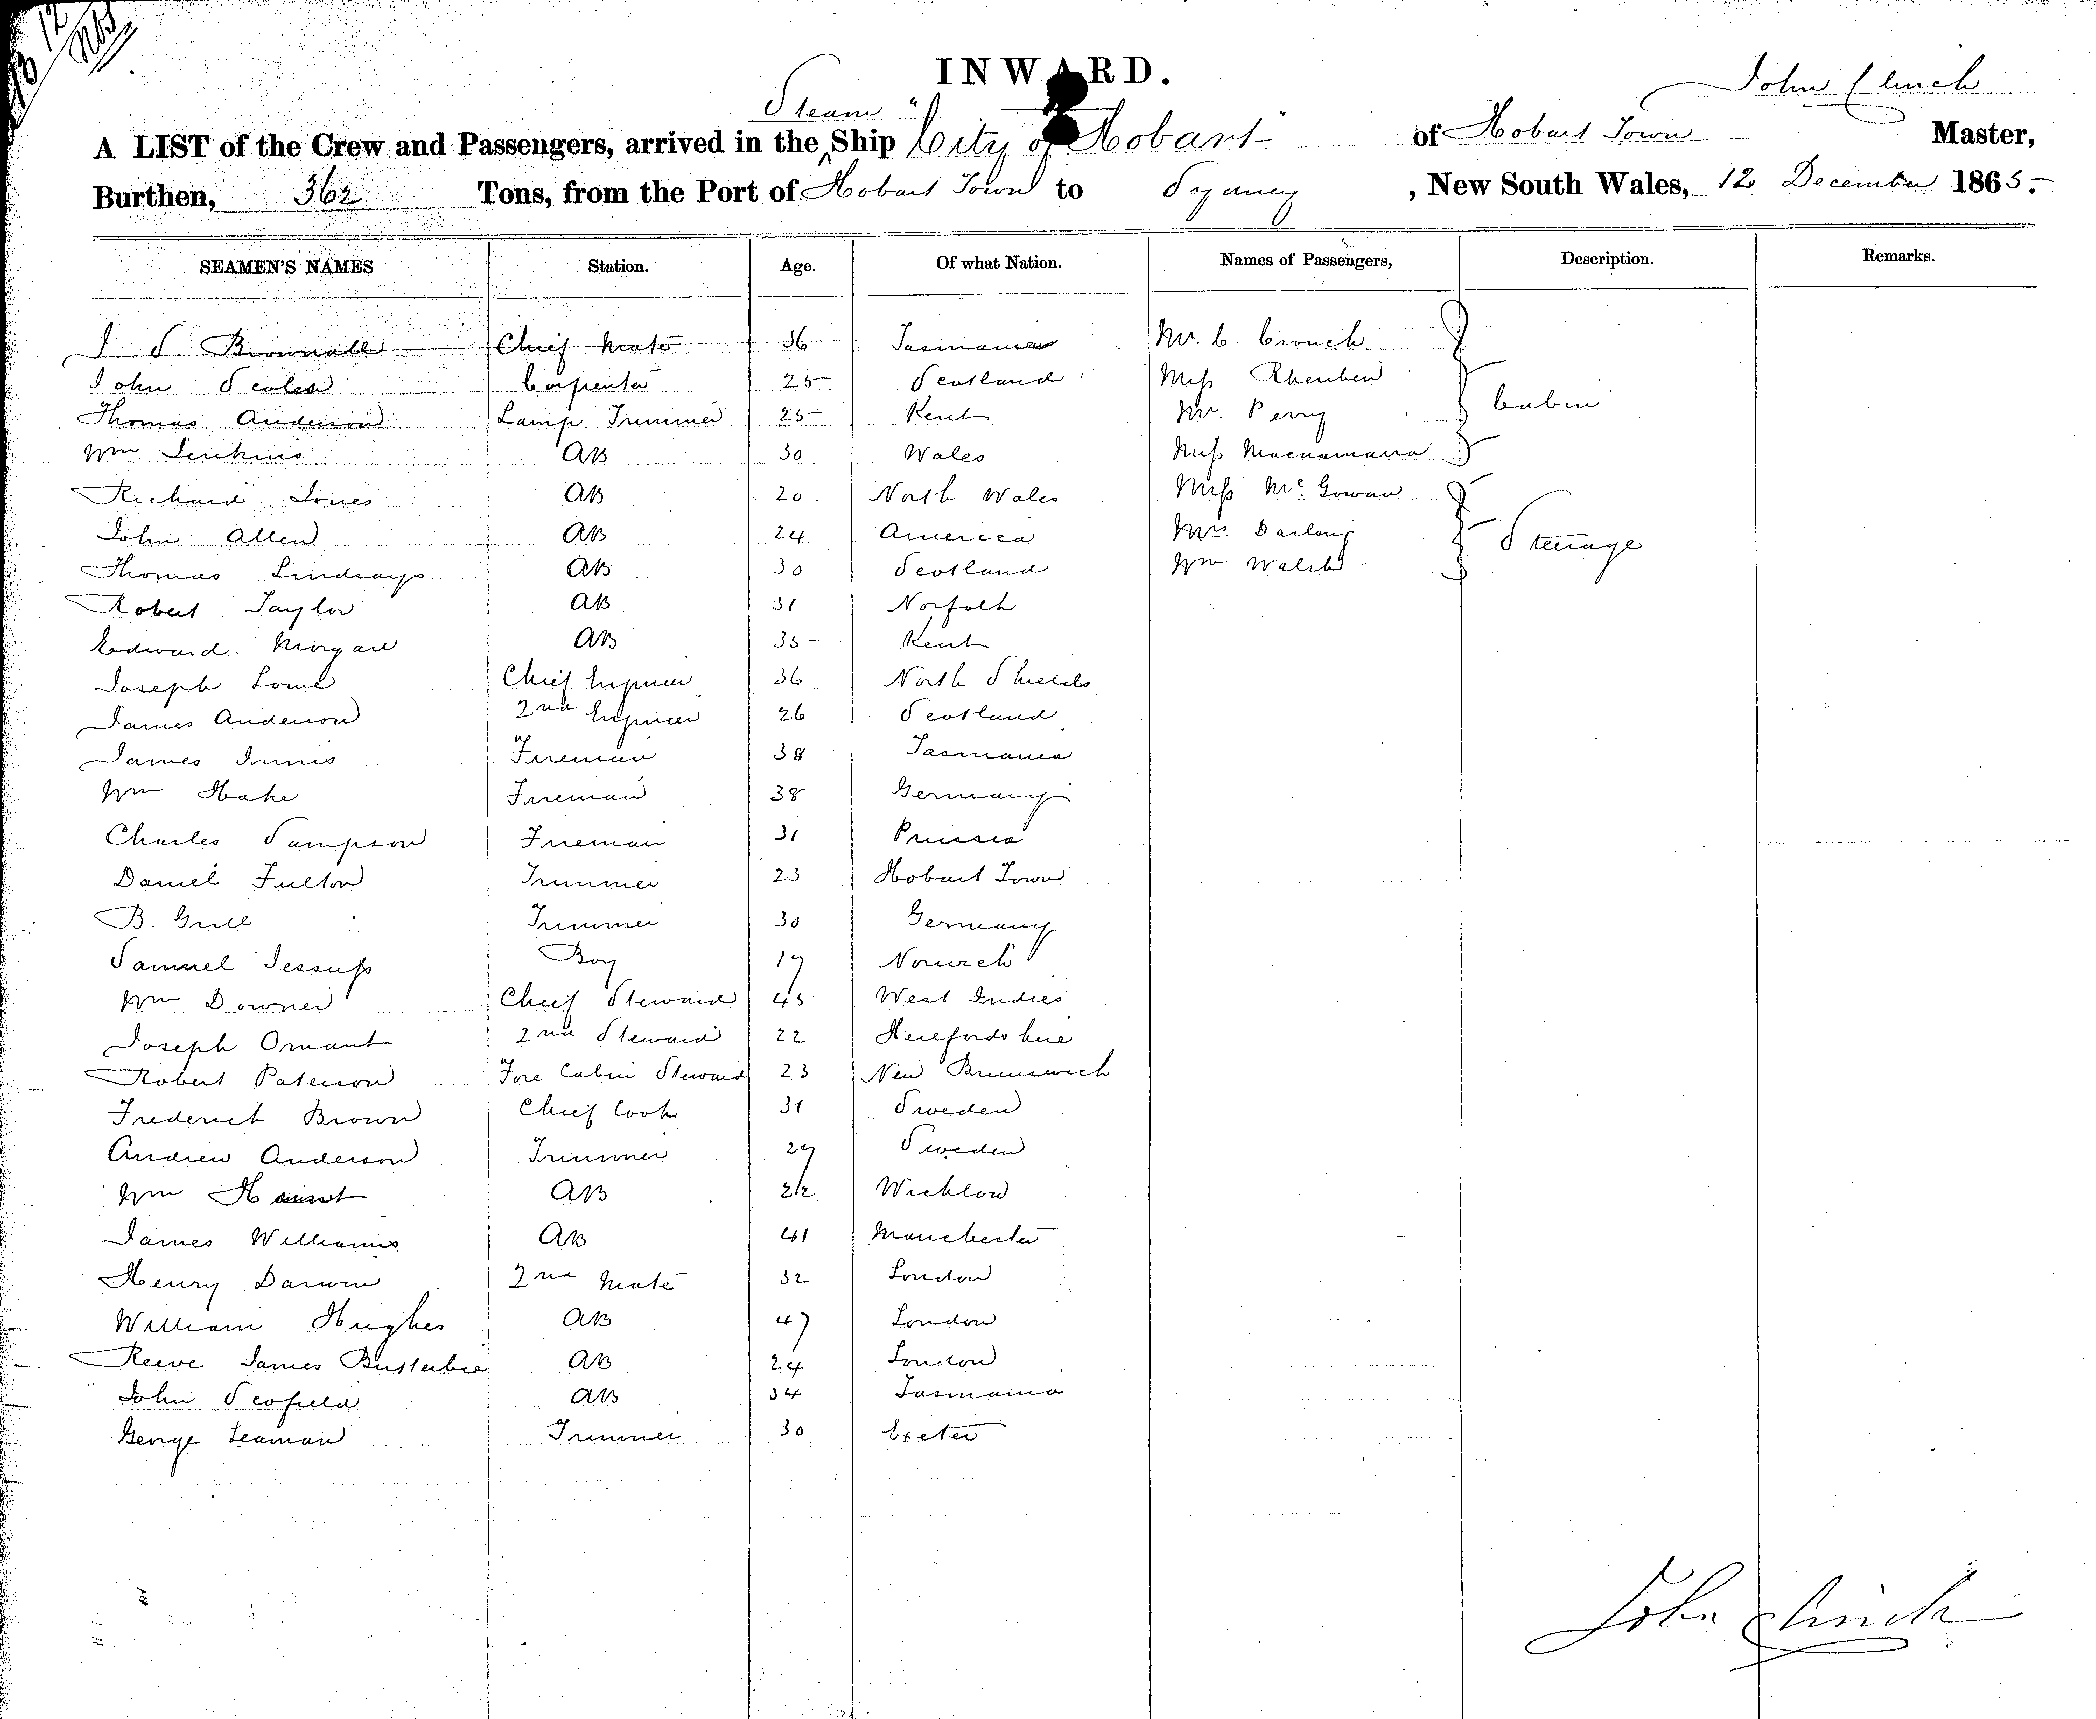 INWARD.
John Clinch
Steam
A LIST of the Crew and Passengers, arrived in the Ship "City of Hobart" of Hobart Town Master,
Burthen, 362 Tons, from the Port of Hobart Town to Sydney, New South Wales, 12 December 1865.
SEAMEN'S NAMES Station. Age. Of what Nation. Names of Passengers, Description. Remarks.
J S Brownall Chief Mate 36 Tasmania Mr. C. Crouch
John Scoles Carpenter 25 Scotland Miss Rheuben
Thomas Anderson Lamp Trimmer 25 Kent Mr. Perry Cabin
Wm Jenkins AB 30 Wales Miss Macnamara
Richard Jones AB 20 North Wales Miss McGowan
John Allen AB 24 America Mrs. Darling Steerage
Thomas Lindsay AB 30 Scotland Wm Walsh
Robert Taylor AB 31 Norfolk
Edward Morgan AB 35 Kent
Joseph Lowe Chief Engineer 36 North Shields
James Anderson 2nd Engineer 26 Scotland
James Innis Fireman 38 Tasmania
Wm Hake Fireman 38 Germany
Charles Sampson Fireman 31 Prussia
Daniel Fulton Trimmer 23 Hobart Town
B. Grill Trimmer 30 Germany
Samuel Jessup Boy 17 Norwich
Wm Downer Chief Steward 45 West Indies
Joseph Ormant 2nd Steward 22 Herefordshire
Robert Paterson Fore Cabin Steward 23 New Brunswick
Frederick Brown Chief Cook 31 Sweden
Andrew Anderson Trimmer 29 Sweden
Wm AB 22 Wicklow
James Williams AB 41 Manchester
Henry Darwin 2nd Mate 32 London
William Hughes AB 47 London
Reeve James AB 24 London
John Scofield AB 34 Tasmania
George Leaman Trimmer 30 Exeter
John Clinch